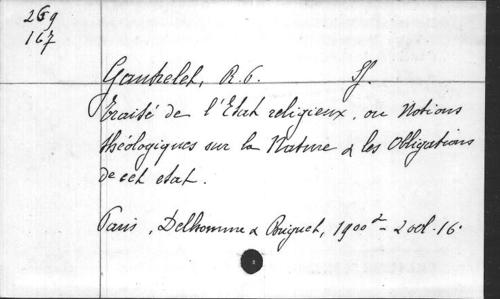 269
167
Gautrelet, R. P. Sj.
Traité de l'Etat religieux, ou Notions
théologiques sur la Nature & les Obligations
de cet etat.
Paris, Delhomme & Briguet, 1900 - 2 vol. 16.